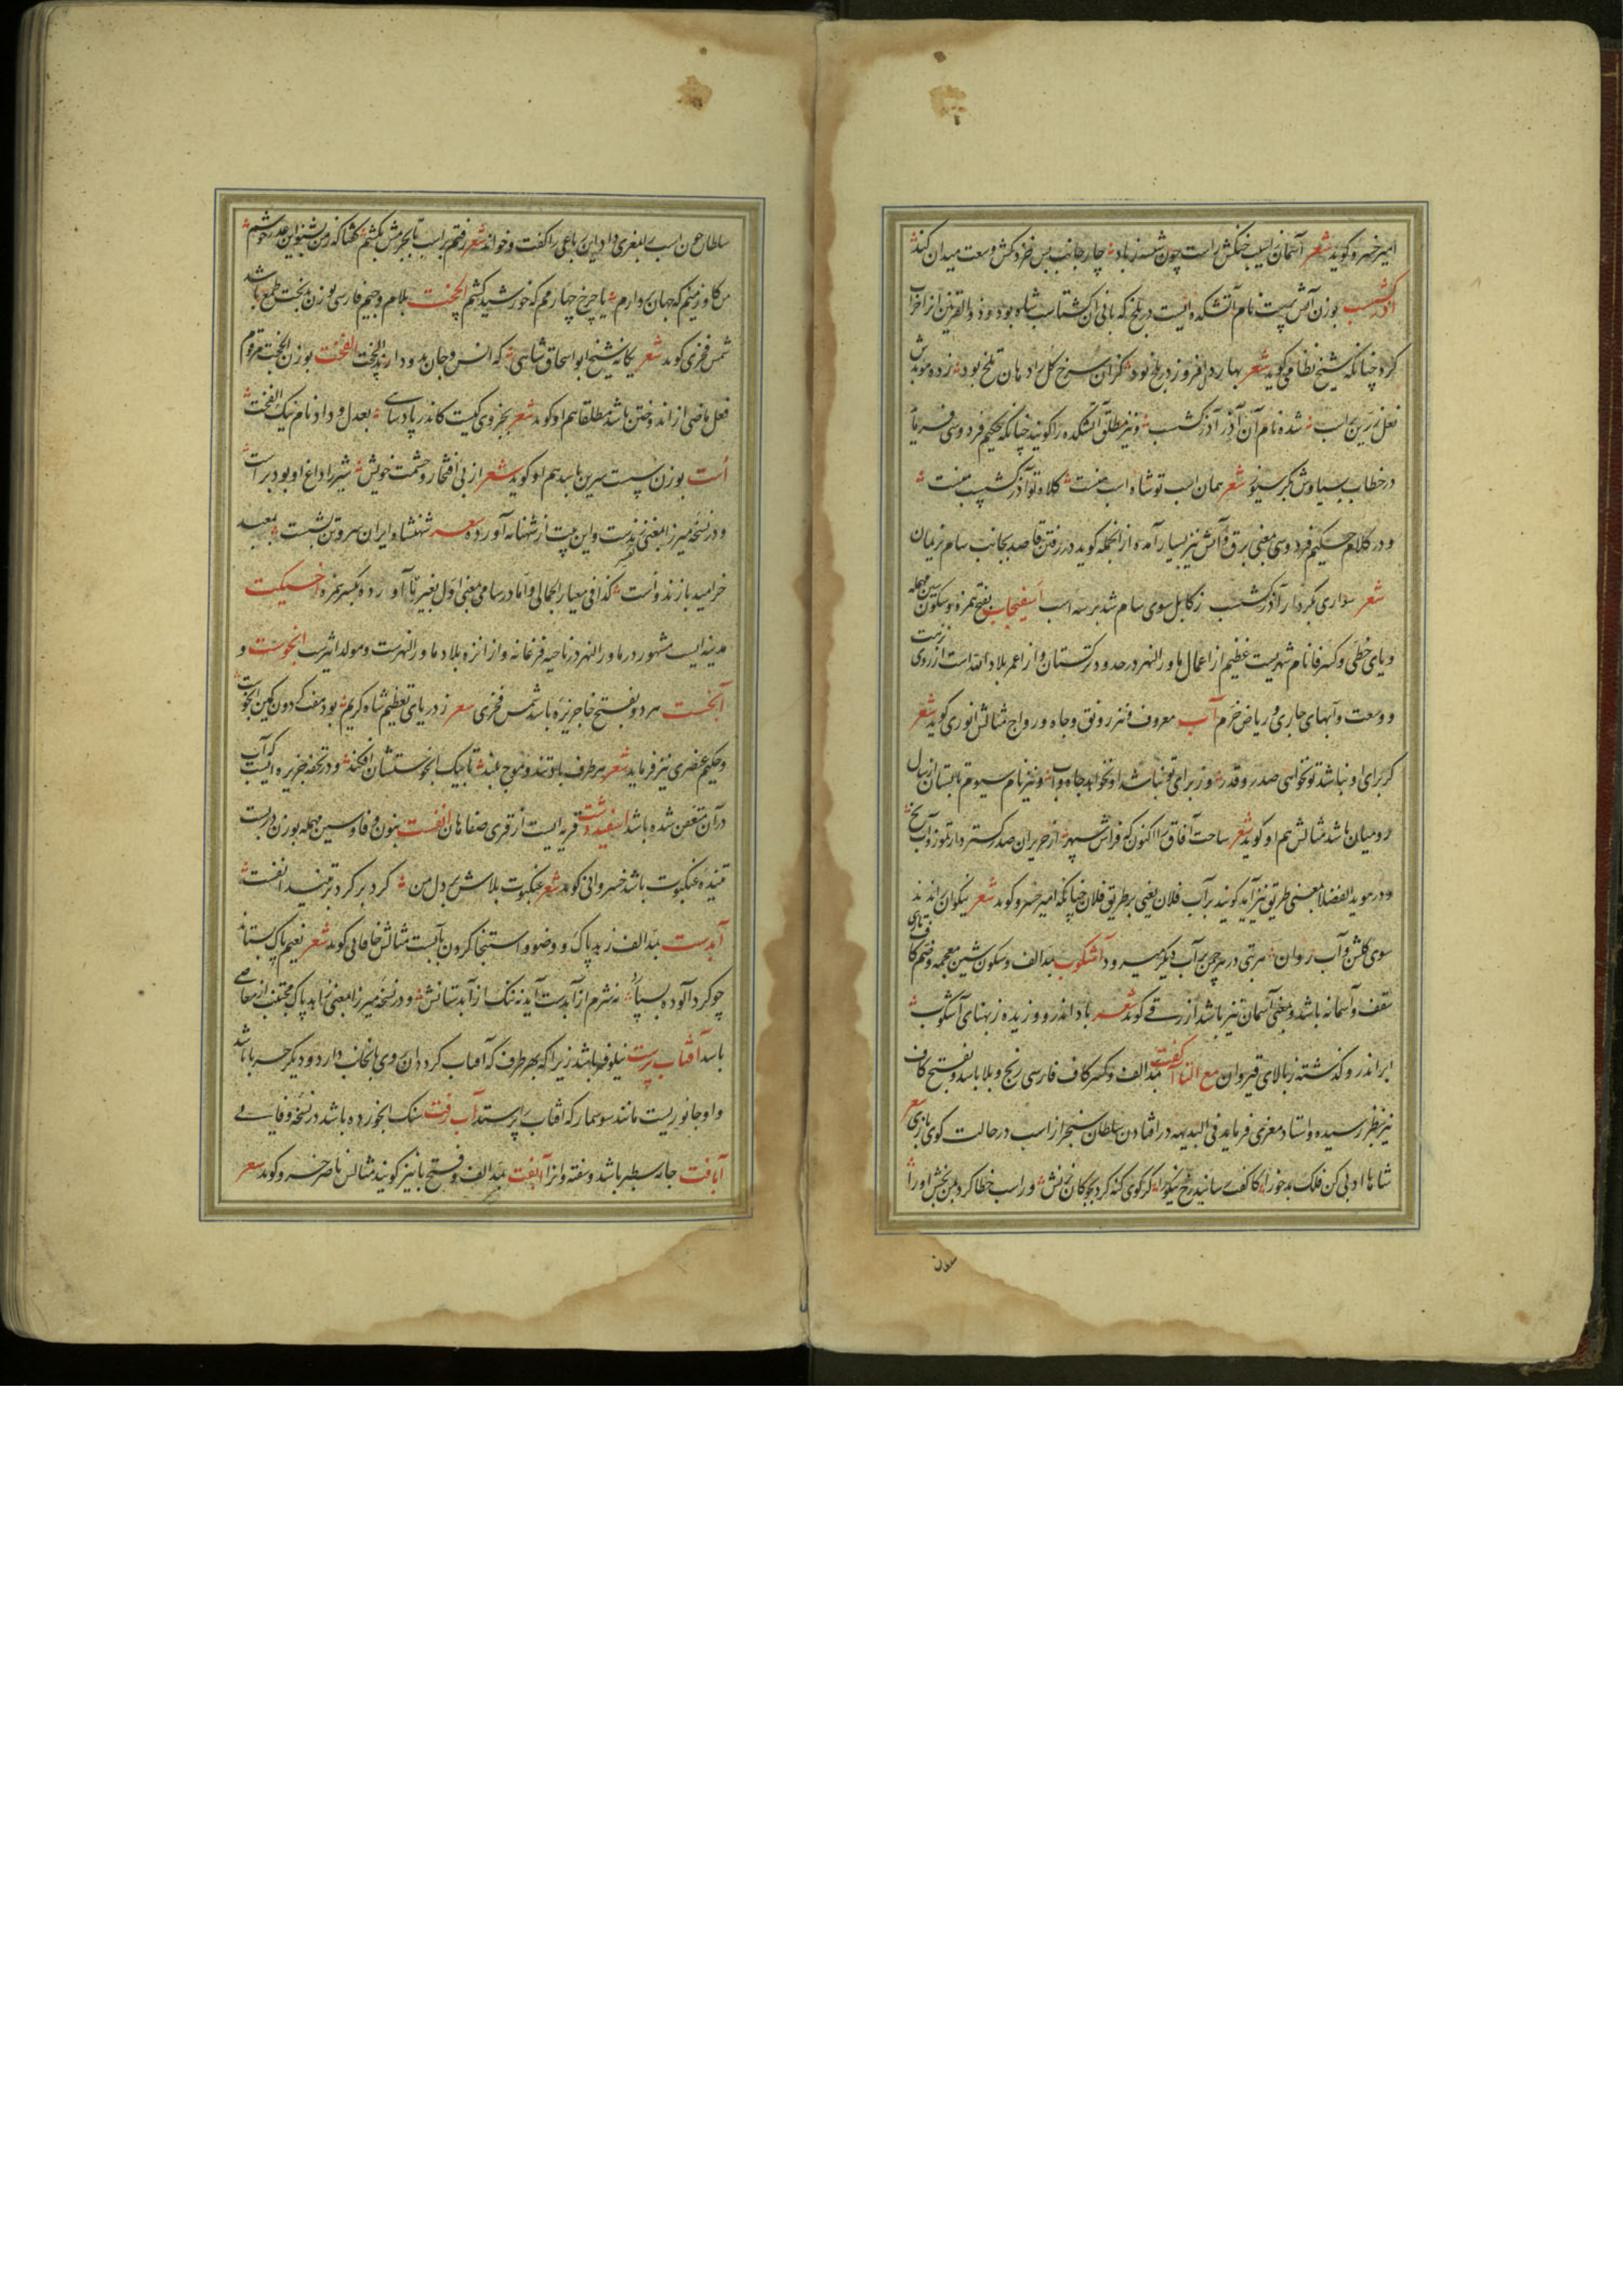 امیر خسرو کوید شعر آسمان اسب خنکش راست چون شسته زیاد چار جانب بس فرو کش وسعت میدان کند
آذرکشسب بوزن آتش پرست نام آتشکده ایست در بلخ که بانی آن کشتاسب شاه بود و ذوالقرنین آنرا خراب
کرد چنانکه شیخ نظامی کوید شعر بهار دل افروز در بلخ بود کزان سرخ کل را دهان تلخ بود زده موبدش
نعل زرین بر اسب شده نام آن آذر آذرکشسب و نیز مطلق آتشکده را کویند چنانکه حکیم فردوسی فرماید
در خطاب سیاوش بکرسیوز شعر همان اسب تو شاه اسب منست کلاه تو آذرکشسب منست
و در کلام حکیم فردوسی بمعنی برق و آتش نیز بسیار آمده از آنجمله کوید در رفتن قاصد بجانب سام نریمان
شعر سواری بکردار آذرکشسب ز کابل سوی سام شد بر سه اسب اسفیجاب بفتح همزه و سکون سین مهمله
و یای حطی و کسر فا نام شهریست عظیم از اعمال ماورالنهر در حدود ترکستان و از اعمر بلاد الله است از روی نزهت
و وسعت و آبهای جاری و ریاض خرم آب معروف و نیز رونق و جاه و رواج مثالش انوری کوید شعر
کر برای او نباشد تو نخواهی صدر و قدر ور برای تو نباشد او نخواهد جاه و آب و نیز نام سیوم تابستان از سال
رومیان باشد مثالش هم او کوید شعر ساحت آفاق را اکنون که فراش سپهر از حزیران صدر کسترد از تموز و آب نخ
و در موید الفضلا بمعنی طریق نیز آید کویند بر آب فلان یعنی بر طریق فلان چنانکه امیر خسرو کوید شعر نیکوان راندند
سوی کلشن و آب روان هر بتی در هر چمن بر آب دیکر میرود آشکوب بمد الف و سکون شین معجمه و ضم کاف تازی
سقف و آسمانه باشد و بمعنی آسمان نیز باشد ازرقی کوید شعر باد اندرو وزیده ز پهنای آشکوب
ابر اندرو کذشته ز بالای قیروان مع التا آکفت بمد الف و کسر کاف فارسی رنج و بلا باشد و بفتح کاف
نیز بنظر رسیده و استاد معزی فرماید فی البدیهه در افتادن سلطان سنجر از اسب در حالت کوی بازی شعر
شاها ادبی کن فلک بد خو را کاسیب رسانید رخ نیکو را کر کوی کنه کرد بچوکان زنش ور اسب خطا کرد بمن بخش او را
سلطان
سلطان چون اسب بامیر معزی داد این رباعی را کفت و خواند شعر رفتم بر اسب تا بجرمش بکشم کفتا که ز من بشنو این عذر خوشم
من کاو زمینم که جهان بردارم یا چرخ چهارمم که خورشید کشم الچخت بلام و جیم فارسی بوزن بدبخت طمع باشد
شمس فخری کوید شعر یکانه شیخ ابو اسحاق شاهی که انس و جان بدو دارند الچخت الفخت بوزن الچخت مرقوم
فعل ماضی از اندوختن باشد مطلقا هم او کوید شعر بجز وی کیست کاندر پادشاهی بعدل و داد نام نیک الفخت
است بوزن پست سرین باشد هم او کوید شعر از پی افتخار و حشمت خویش شیر را داغ او بود بر است
و در نسخه میرزا بمعنی زندست و این بیت از شهنامه آورده شعر شهنشاه ایران سر و تن بشست بمعبد
خرامید با زند و است کذا فی معیار الجمالی و اما در سامی معنی اول بغیر تا آورده بکسر همزه اخسیکت
مدینه ایست مشهور در ماورالنهر در ناحیه فرغانه و از انزه بلاد ماورالنهرست و مولد اثیرست انخوست و
آبخست هر دو بفتح خا جزیره باشد شمس فخری شعر ز دریای تعظیم شاه کریم بود هفت کردون یکمین آبخوست
و حکیم عنصری نیز فرماید شعر هر طرف باد تند و موج بلند تا بیک آبخوستشان افکند و در تحفه جزیره ایست که آب
در آن متعفن شده باشد اسفیددشت قریه ایست از قری صفاهان انفست بنون و فا و سین مهمله بوزن درست
تنیده عنکبوت باشد خسروانی کوید شعر عنکبوت بلاش بر دل من کرد بر کرد بر تنید انفست
آبدست بمد الف زبد پاک و وضو و استنجا کردن بآبست مثالش خاقانی کوید شعر نعیم پاک بستاند
چو کرد آلوده بسپارد نه شرم از آبدست آید نه ننک از آبدستانش و در نسخه میرزا بمعنی زاهد پاک مجتنب از معاصی
باشد آفتاب پرست نیلوفر باشد زیرا که بهر طرف که آفتاب کردد آن روی بآنجانب دارد و دیکر حربا باشد
و او جانوریست مانند سوسمار که آفتاب پرستد آب رفت سنک آبخورده باشد در نسخه وفایی
آبافت جامه سطبر باشد و سفته و انرا آبفت بمد الف و فتح با نیز کویند مثالش ناصر خسرو کوید شعر